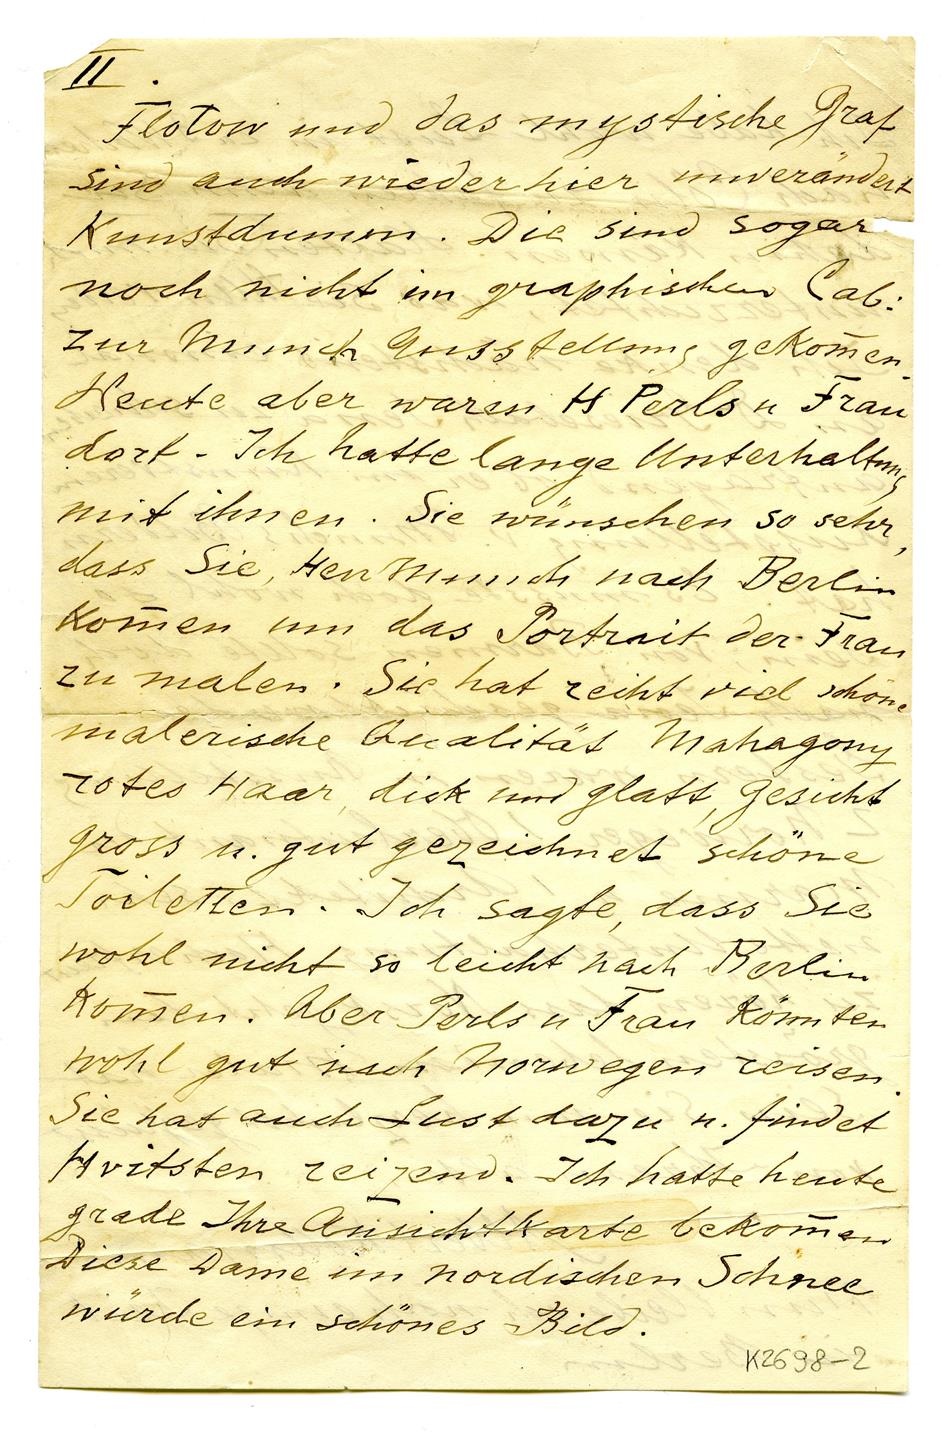 II.
Flotow und das mystische Graf
sind auch wieder hier unverändert
Kunstdumm. Die sind sogar
noch nicht im graphischen Cab:
zur Munch Ausstellung gekom̄en.
Heute aber waren H Perls u Frau
dort - Ich hatte lange Unterhaltung
mit ihnen. Sie wünschen so sehr,
dass Sie, Herr Munch nach Berlin
kom̄en um das Portrait der Frau
zu malen. Sie hat recht viel schöne
malerische Qualität Mahagony
rotes Haar, dick und glatt, Gesicht
gross u. gut gezeichnet schöne
Toiletten. Ich sagte, dass Sie
wohl nicht so leicht nach Berlin
kom̄en. Aber Perls u Frau könnten
wohl gut nach Norwegen reisen.
Sie hat auch Lust dazu u. findet
Hvitsten reizend. Ich hatte heute
grade Ihre Ansichtkarte bekom̄en
Diese Dame im nordischen Schnee
würde ein schönes Bild.
K2698-2